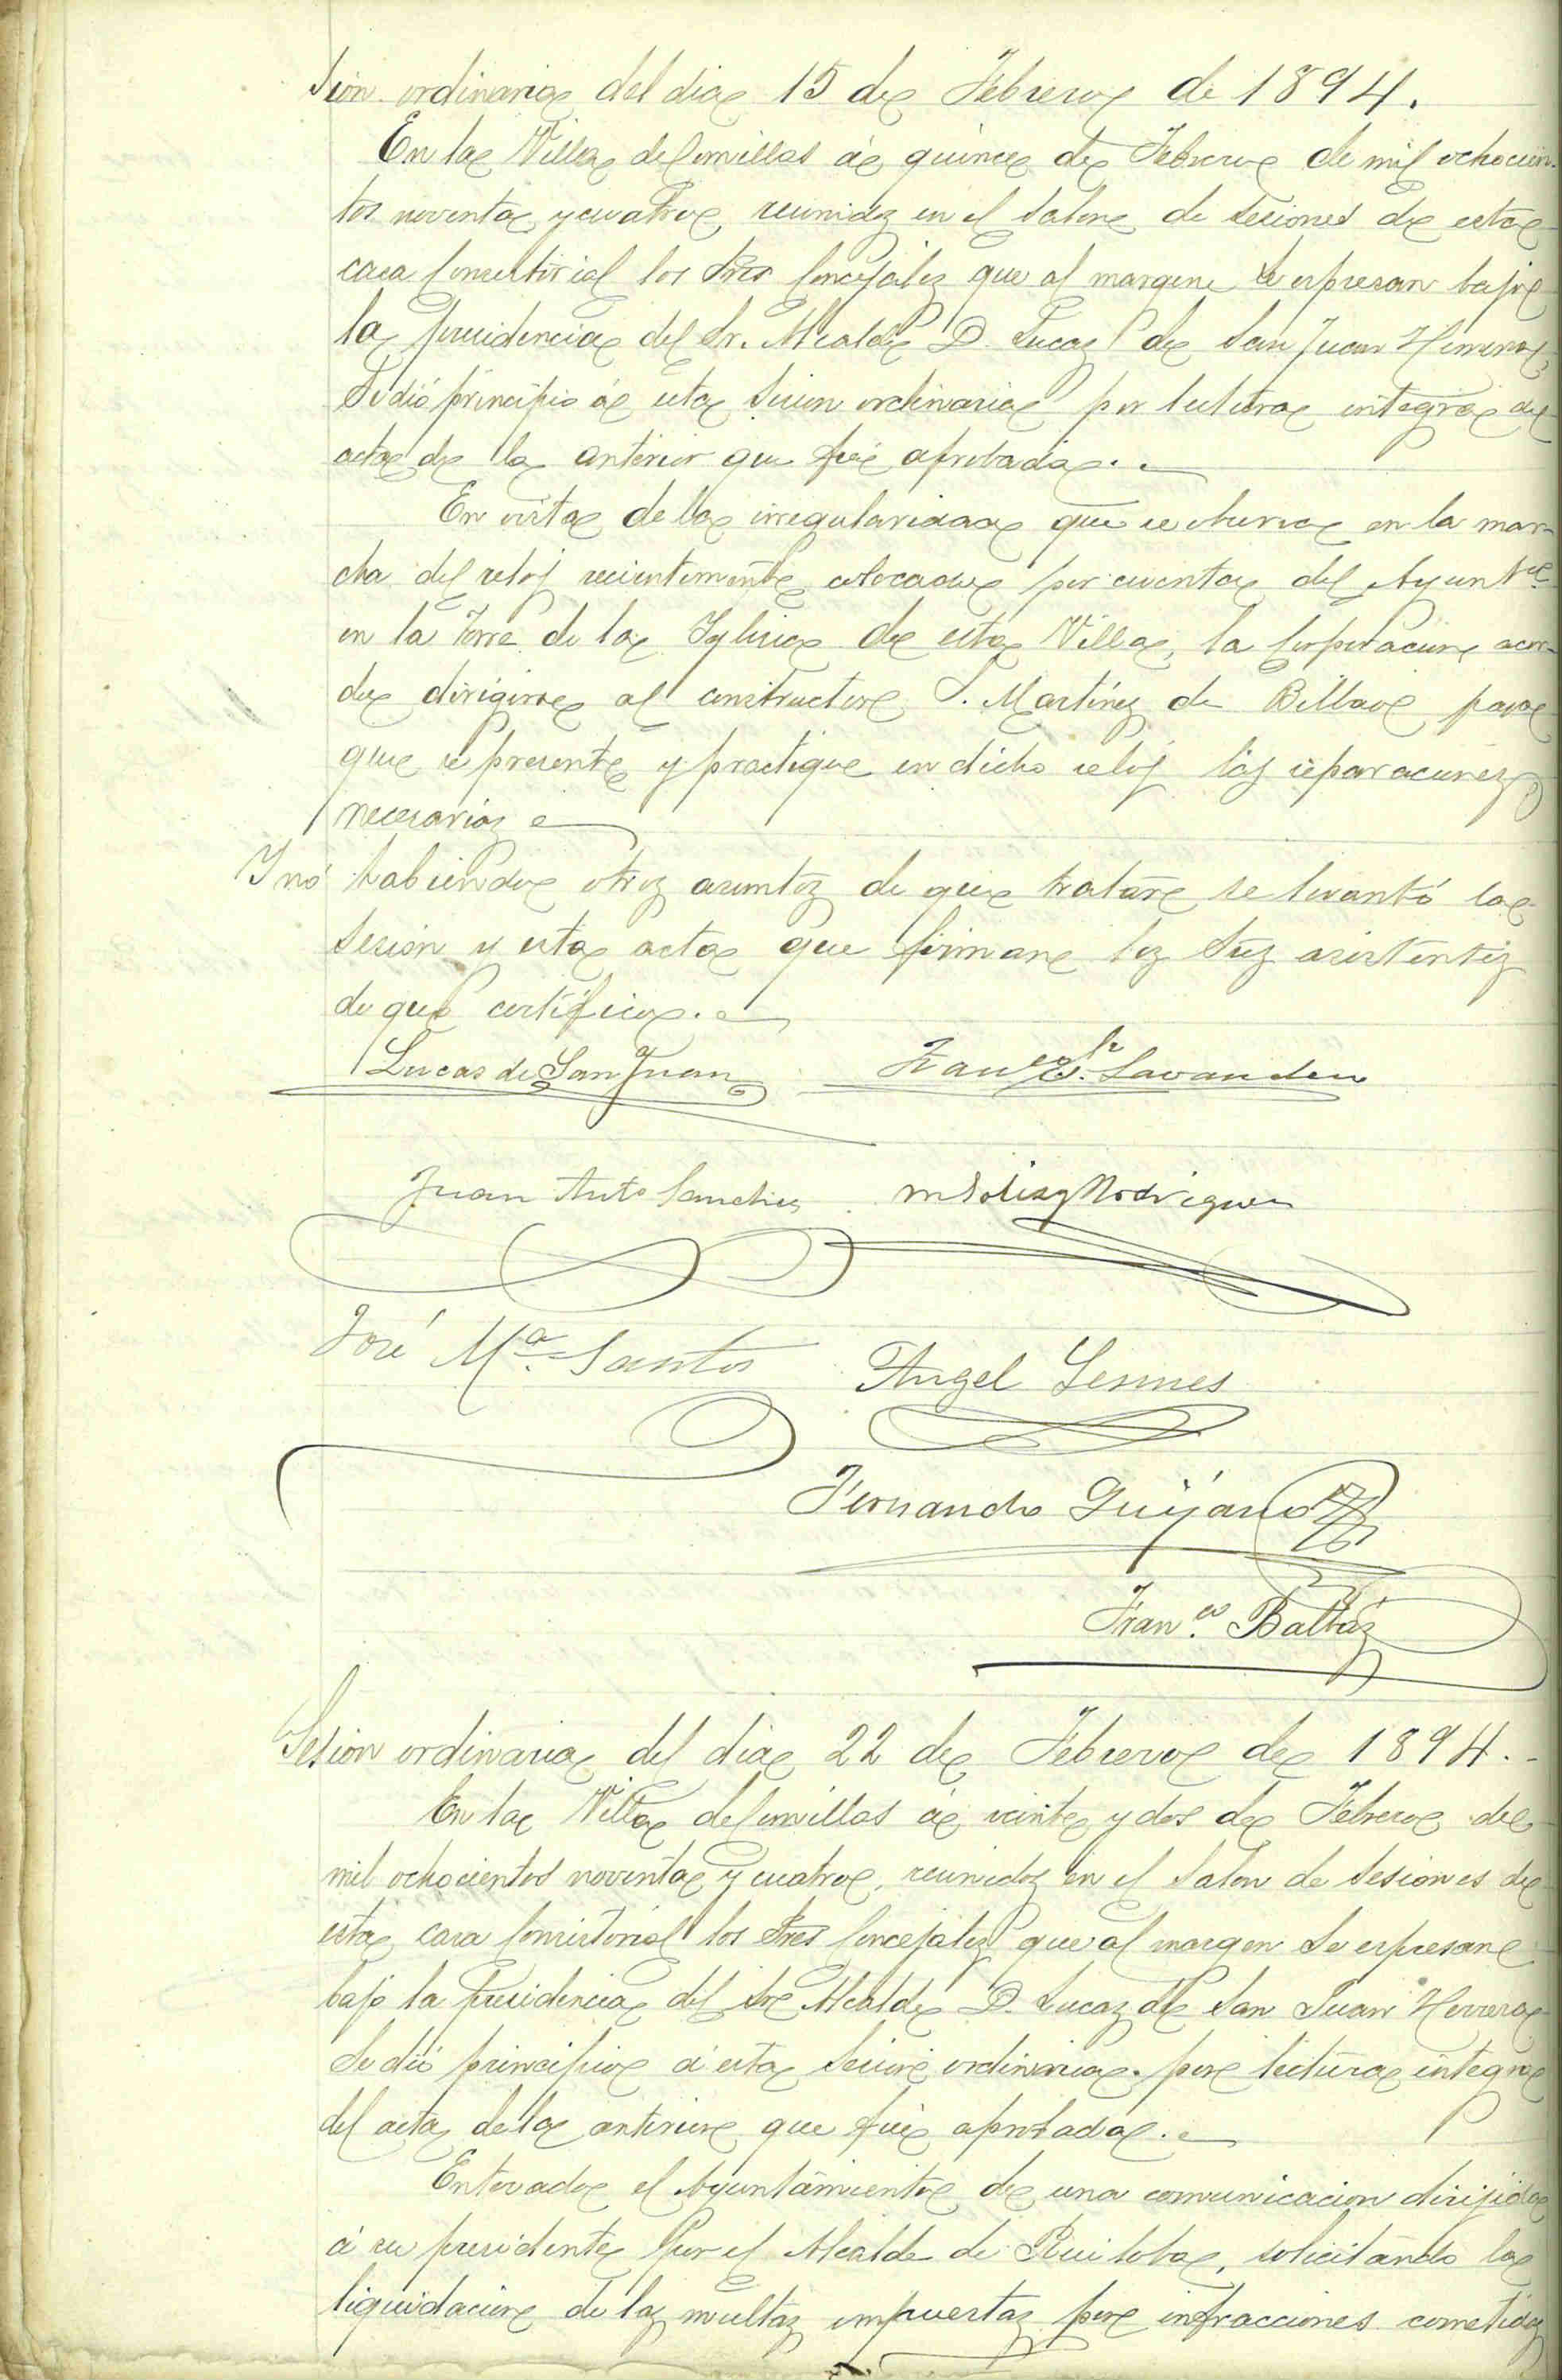 Sion ordinaria del dia 15 de Febrero de 1894.
En la Villa de Comillas á quince de Febrero de mil ochocien-
tos noventa y cuatro, reunidos en el Salon de Sesiones de esta
casa Consistorial los Sres Concejales que al margen se espresan bajo
la presidencia del Sr. Alcalde D. Lucas de San Juan Herrera,
Se dió principio á esta Sesion ordinaria por lectura integra del
acta de la anterior que fué aprobada.
En vista de la irregularidad que se observa en la mar-
cha del reloj recientemente colocado por cuenta del Ayuntto
en la Torre de la Yglesia de esta Villa, la Corporacion acor-
do dirigirse al constructor S. Martínez de Bilbao para
que se presente y practique en dicho reloj las reparaciones
necesarias
Y nó habiendo otros asuntos de que tratar se levantó la
Sesion y esta acta que firman los Sres asistentes
de que certifico.
Lucas de San Juan Franco S. Lavandero
Juan Anto Sanchez M Solis y Rodriguez
José Ma Santos Angel
Fernando Quijano
Franco Balbás
Sesion ordinaria del dia 22 de Febrero de 1894.
En la Villa de Comillas á veinte y dos de Febrero de
mil ochocientos noventa y cuatro, reunidos en el Salon de Sesiones de
esta casa Consistorial los Sres Concejales que al margen se espresan
bajo la Presidencia del Sr Alcalde D. Lucas de San Juan Herrera
Se dió principio á esta Sesion ordinaria por lectura integra
del acta de la anterior que fué aprobada.
Enterado el Ayuntamiento de una comunicacion dirijida
á su presidente por el Alcalde de Ruiloba, solicitando la
liquidacion de las multas impuestas por infracciones cometidas